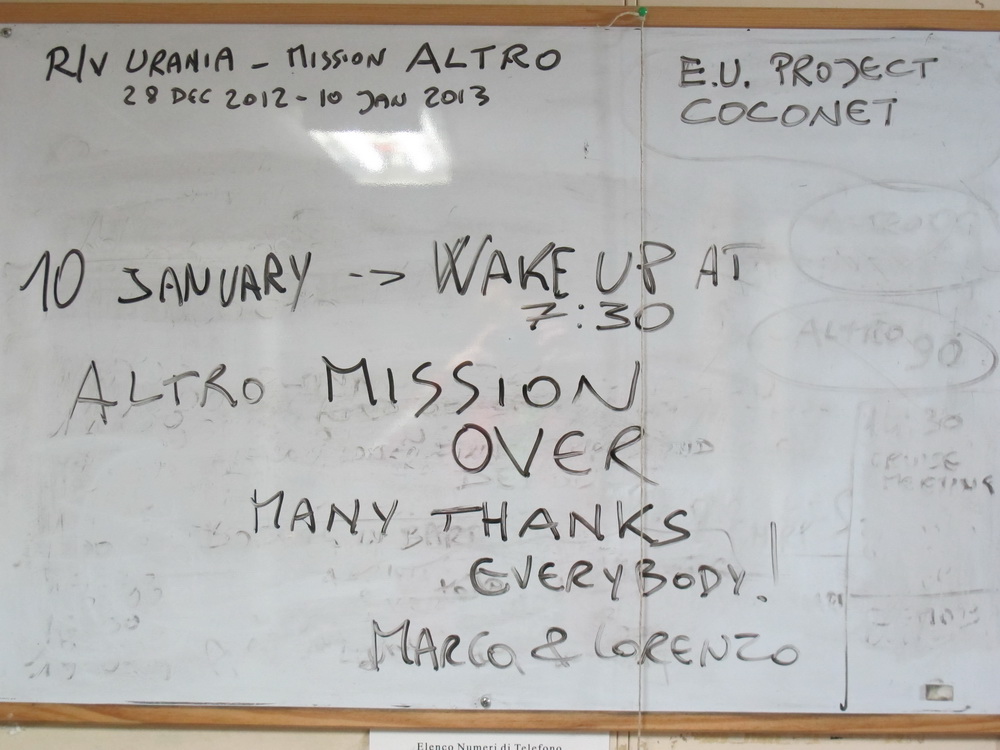 R/V URANIA - MISSION ALTRO
28 DEC 2012 - 10 JAN 2013
E.U. PROJECT
COCONET
10 JANUARY --> WAKE UP AT
7:30
ALTRO MISSION
OVER
MANY THANKS
EVERYBODY!
MARCO & LORENZO
ALTRO 90
30
CRUISE
MEETING
Elenco Numeri di Telefono